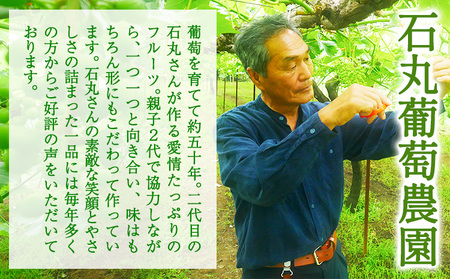 石丸葡萄農園
葡萄を育てて約五十年。二代目の
石丸さんが作る愛情たっぷりの
フルーツ。親子２代で協力しなが
ら、一つ一つと向き合い、味はも
ちろん形にもこだわって作ってい
ます。石丸さんの素敵な笑顔とやさ
しさの詰まった一品には毎年多く
の方からご好評の声をいただいて
おります。